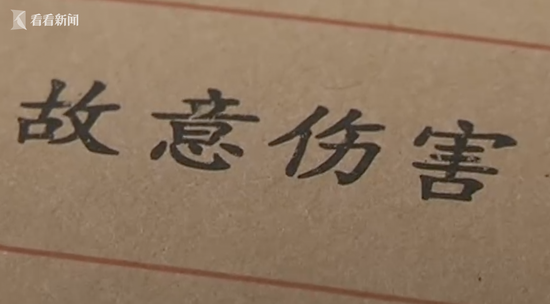 看看新闻
故意伤害